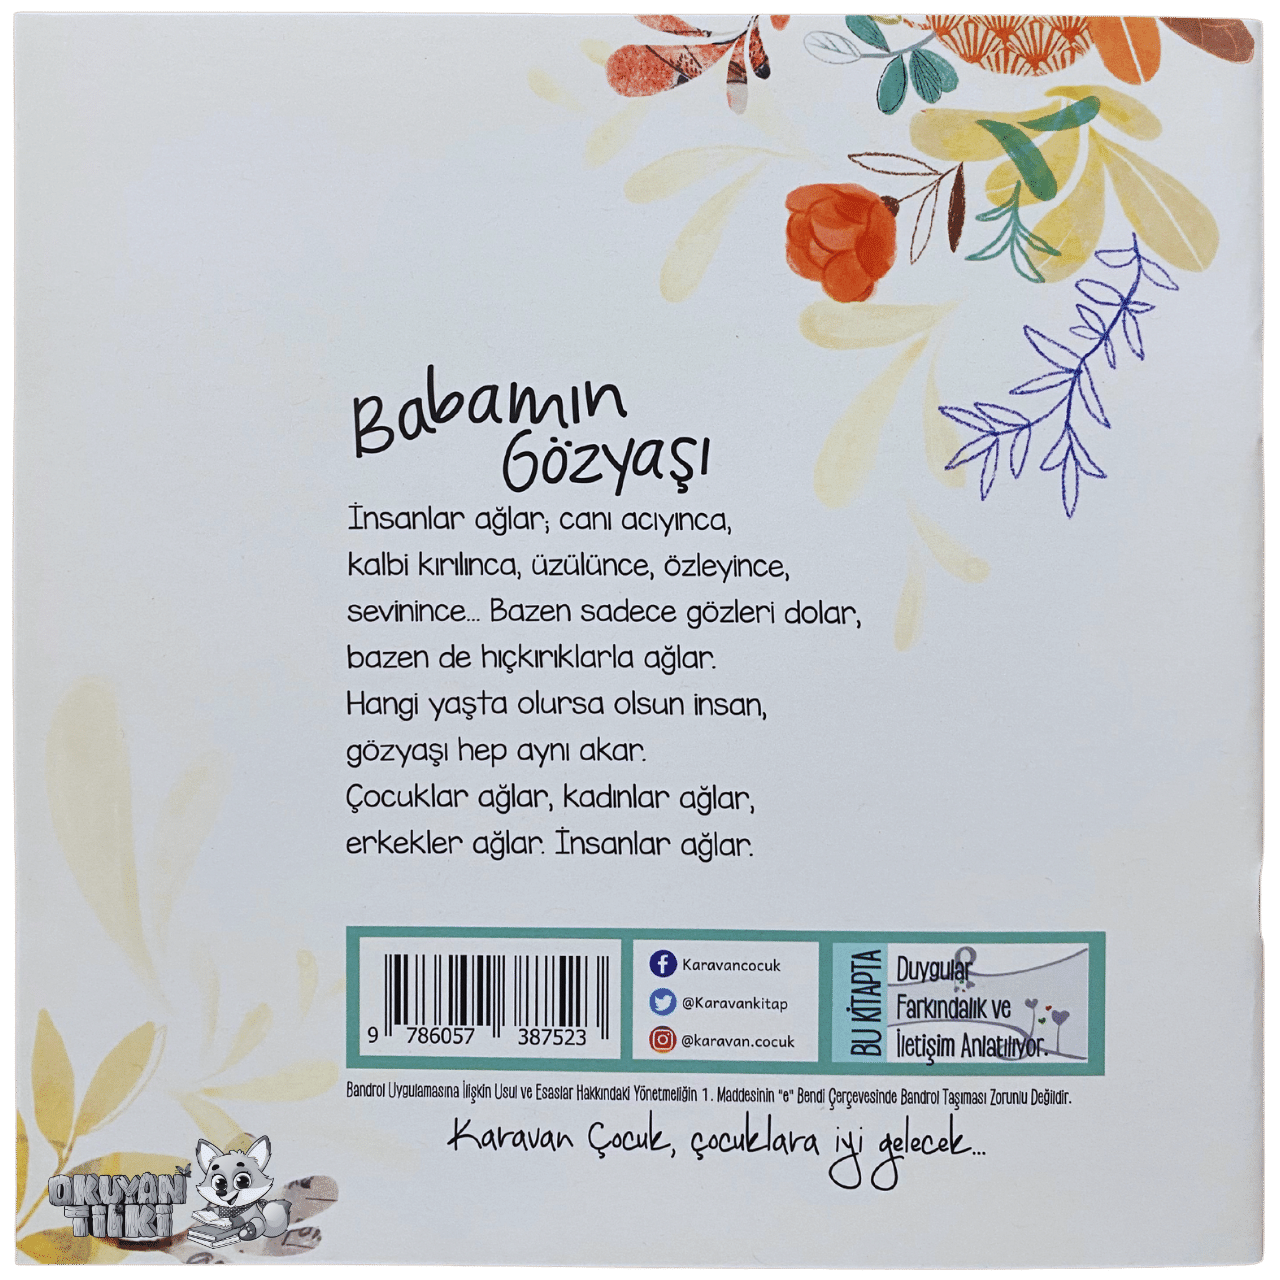 Babamın
Gözyaşı
İnsanlar ağlar; canı acıyınca,
kalbi kırılınca, üzülünce, özleyince,
sevinince... Bazen sadece gözleri dolar,
bazen de hıçkırıklarla ağlar.
Hangi yaşta olursa olsun insan,
gözyaşı hep aynı akar.
Çocuklar ağlar, kadınlar ağlar,
erkekler ağlar. İnsanlar ağlar.
9 786057 387523
Karavancocuk
@Karavankitap
@karavan.cocuk
BU KİTAPTA
Duygular
Farkındalık ve
İletişim Anlatılıyor.
Bandrol Uygulamasına İlişkin Usul ve Esaslar Hakkındaki Yönetmeliğin 1. Maddesinin "e" Bendi Çerçevesinde Bandrol Taşıması Zorunlu Değildir.
Karavan Çocuk, çocuklara iyi gelecek...
OKUYAN
TİLKİ